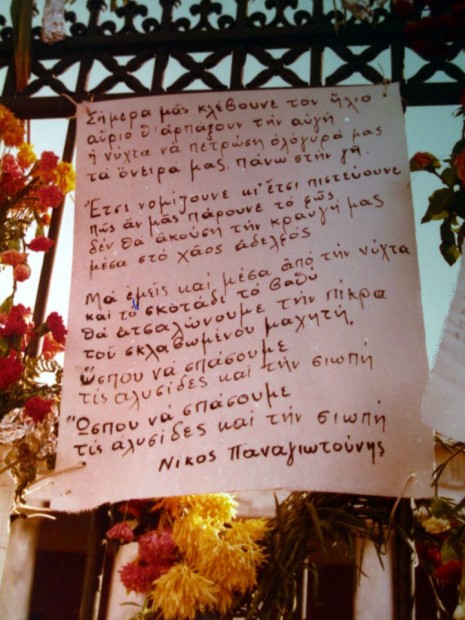 Σήμερα μᾶς κλέβουνε τὸν ἥλιο
αὔριο θ' ἁρπάξουν τὴν αὐγὴ
ἡ νύχτα νὰ πετρώσῃ ὁλόγυρά μας
τὰ ὄνειρα μας πάνω στὴν γῆ.
Ἔτσι νομίζουνε κι' ἔτσι πιστεύουνε
πῶς ἂν μᾶς πάρουνε τὸ φῶς
δὲν θὰ ἀκούσῃ τὴν κραυγή μας
μέσα στὸ χάος ἀδελφὸς
Μὰ ἐμεῖς καὶ μέσα ἀπὸ τὴν νύχτα
καὶ τὸ σκοτάδι τὸ βαθὺ
θὰ ἀτσαλώνουμε τὴν πίκρα
τοῦ σκλαβωμένου μαχητῆ.
Ὥσπου νὰ σπάσουμε
τὶς ἁλυσίδες καὶ τὴν σιωπὴ
Ὥσπου νὰ σπάσουμε
τὶς ἁλυσίδες καὶ τὴν σιωπὴ
Νίκος Παναγιωτούνης